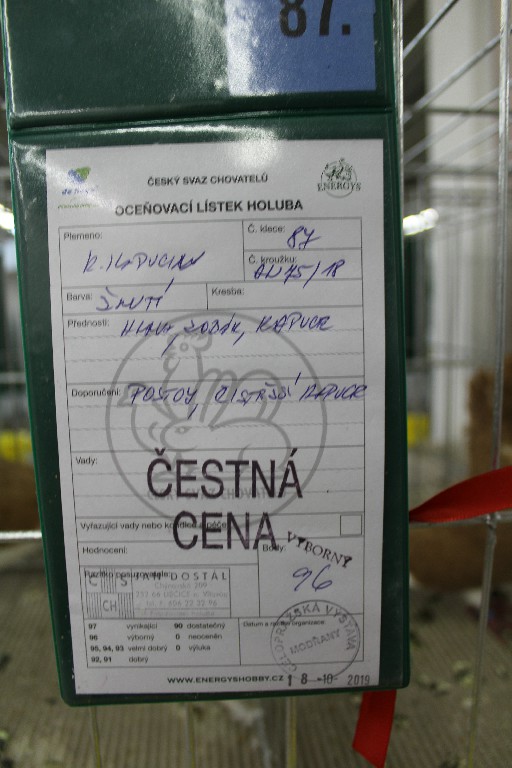 87.
ČESKÝ SVAZ CHOVATELŮ
ENERGYS
OCEŇOVACÍ LÍSTEK HOLUBA
Plemeno:
Č. klece: 87
Č. kroužku:
Barva: ŽLUTÍ
Kresba:
Přednosti: HLAVA, ZOBÁK, KAPUCE
Doporučení: POSTOJ, ČISTŠÍ KAPUCE
Vady:
ČESTNÁ
CENA
Vyřazující vady nebo
Hodnocení:
Body:
VÝBORNÝ
96
JAN DOSTÁL
CH
97 vynikající 90 dostatečný
96 výborný 0 neoceněn
95, 94, 93 velmi dobrý 0 výluka
92, 91 dobrý
Datum a
CELOPRAŽSKÁ VÝSTAVA
MODŘANY
WWW.ENERGYSHOBBY.CZ
18 -10- 2019